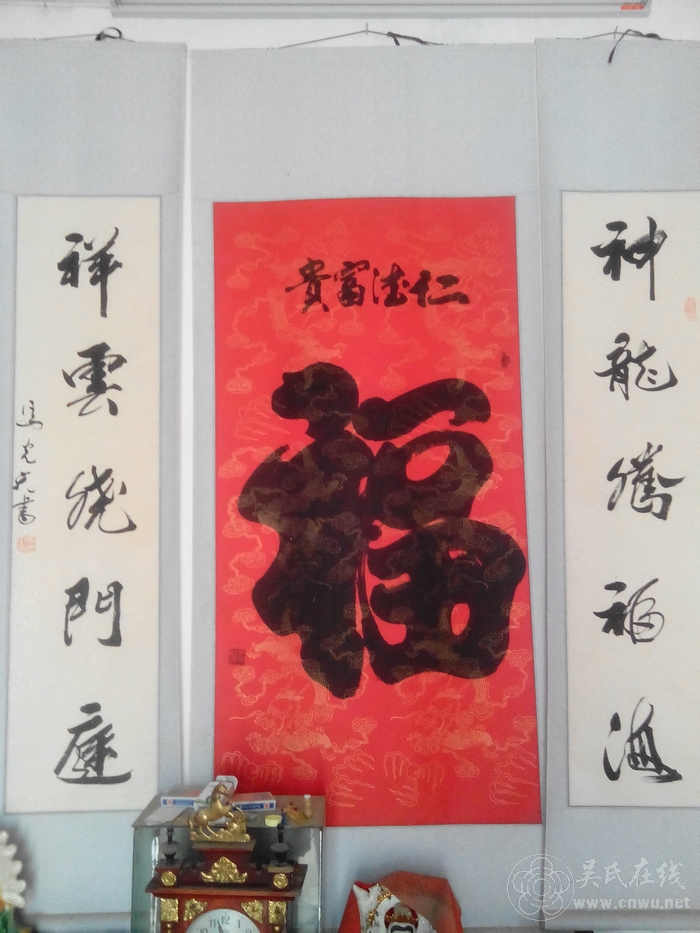 神龍騰福海
仁德富貴
福
祥雲繞門庭
書
吴氏在线
www.cnwu.net